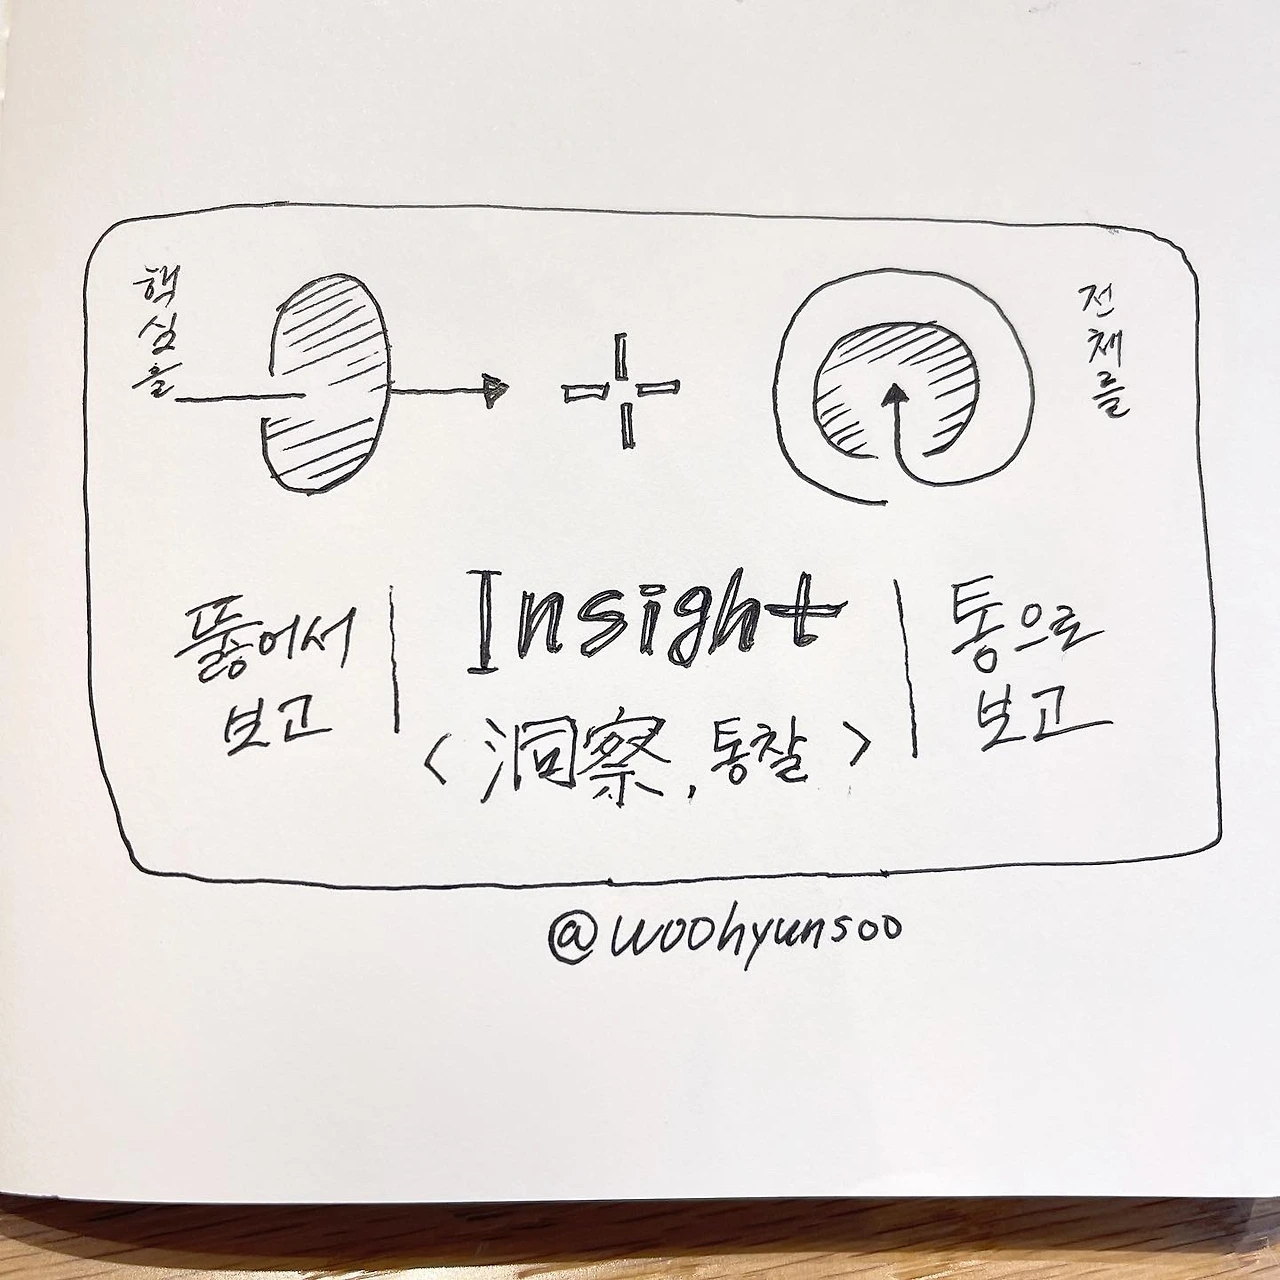 핵심을
전체를
뚫어서
보고
Insight
<洞察, 통찰>
통으로
보고
@woohyunsoo